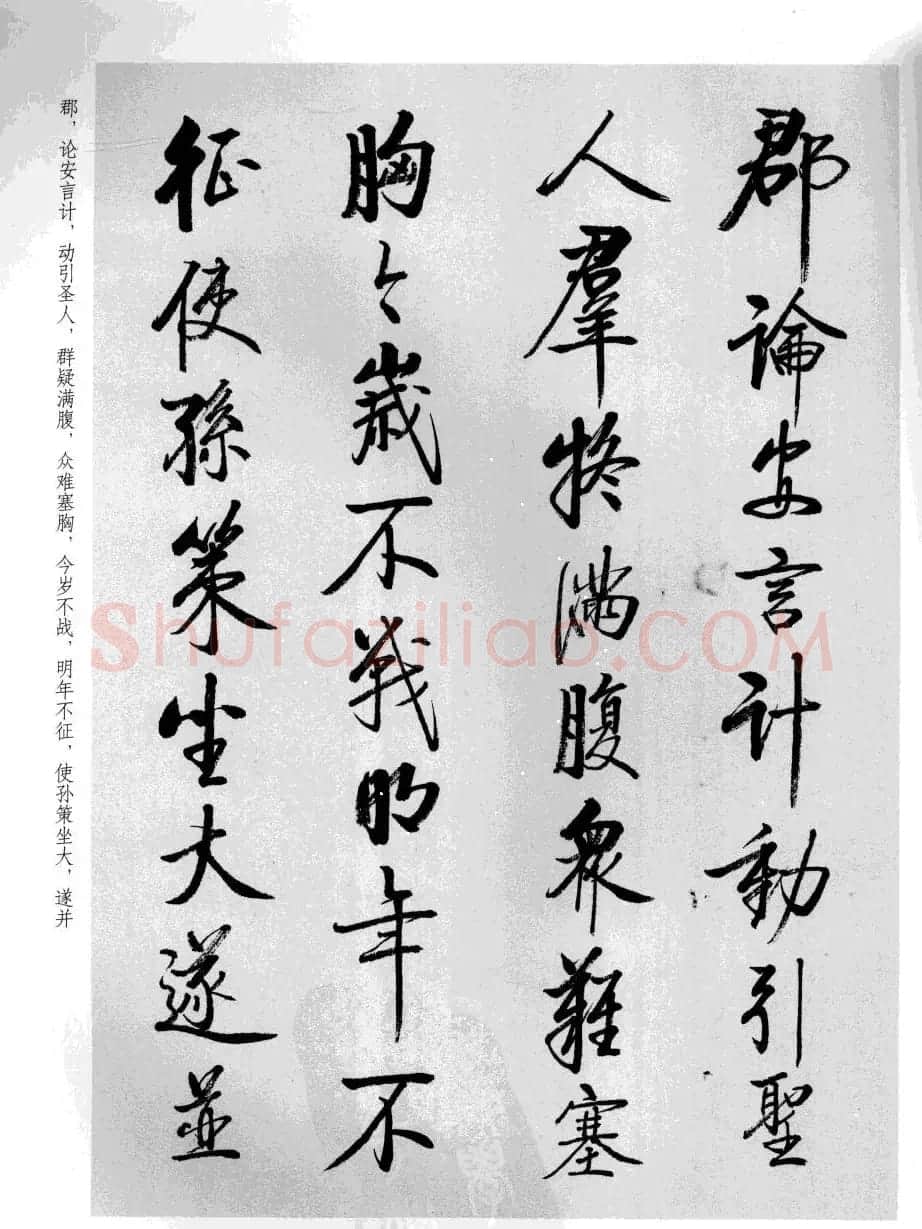 郡論安言計動引聖
人羣疑滿腹衆難塞
胸今歲不戰明年不
征使孫策坐大遂並
郡，论安言计，动引圣人，群疑满腹，众难塞胸，今岁不战，明年不征，使孙策坐大，遂并
Shufaziliao.COM